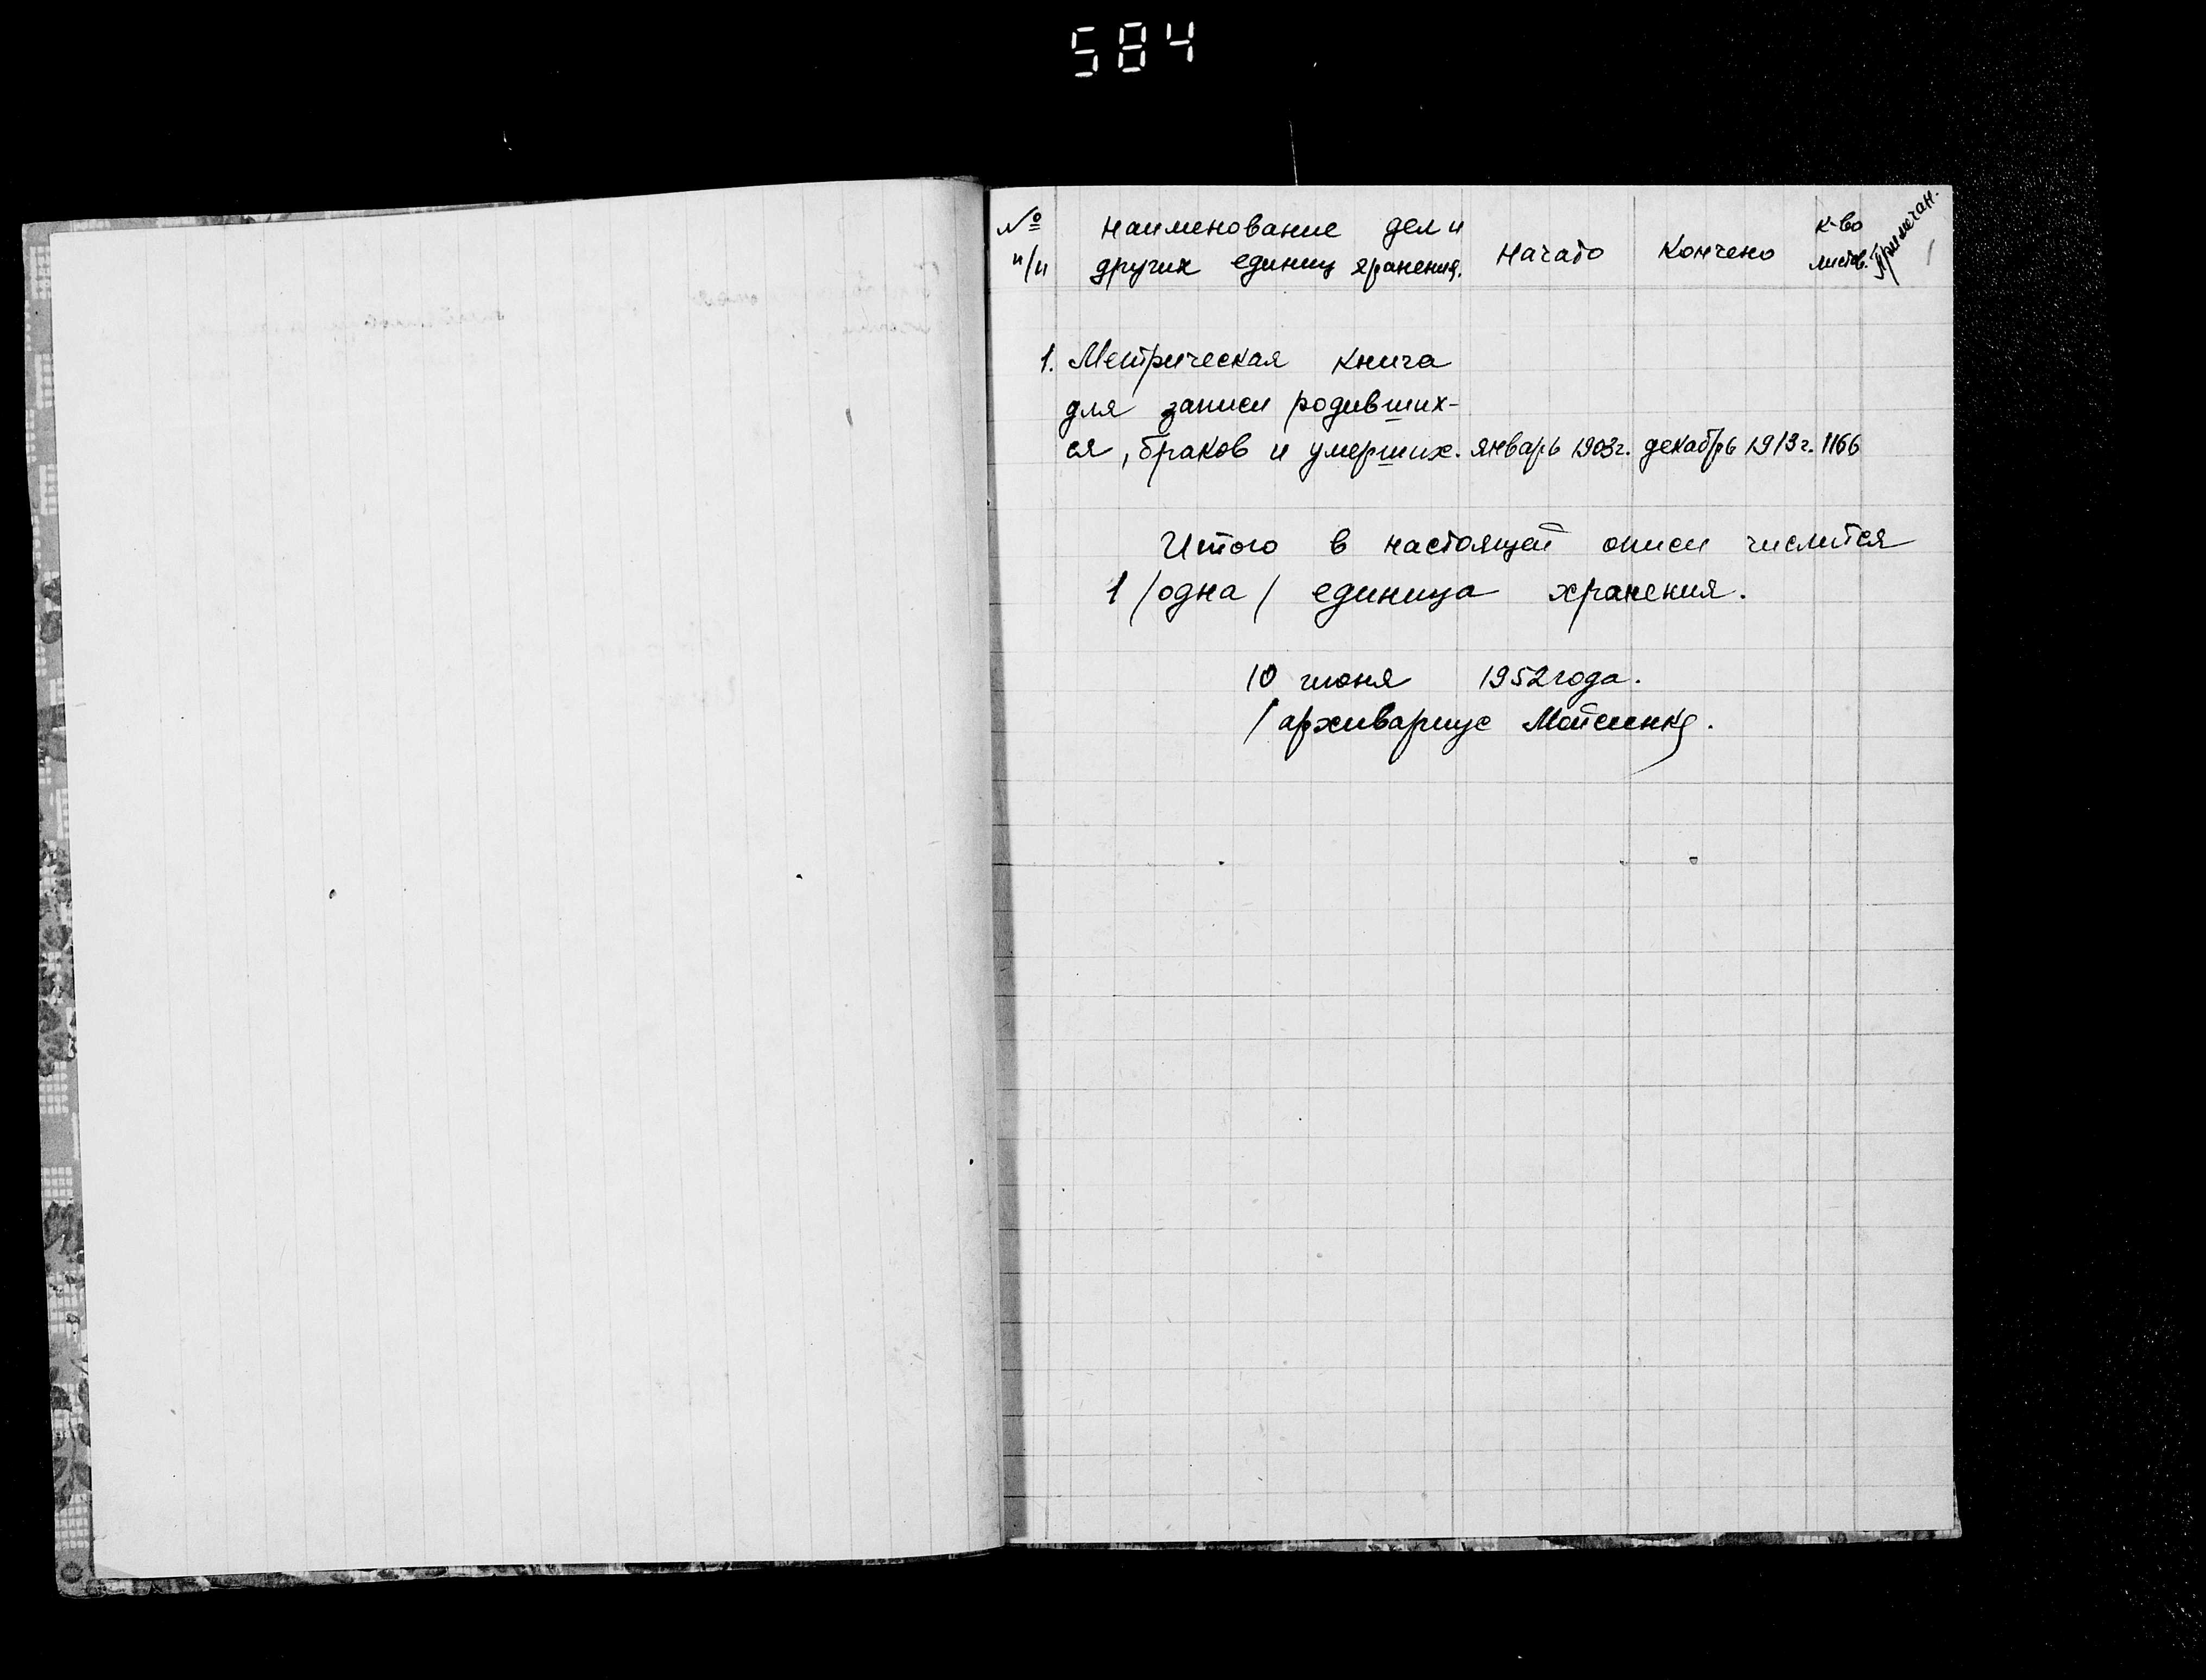 584
№ наименование дел и Начато Кончено к-во Примечан.
п/п других единиц хранения. листов. 1
1. Метрическая книга
для записи родивших-
ся, браков и умерших. январь 1903г. декабрь 1913г. 1166
Итого в настоящей описи числится
1 /одна/ единица хранения.
10 июня 1952 года.
/ архивариус